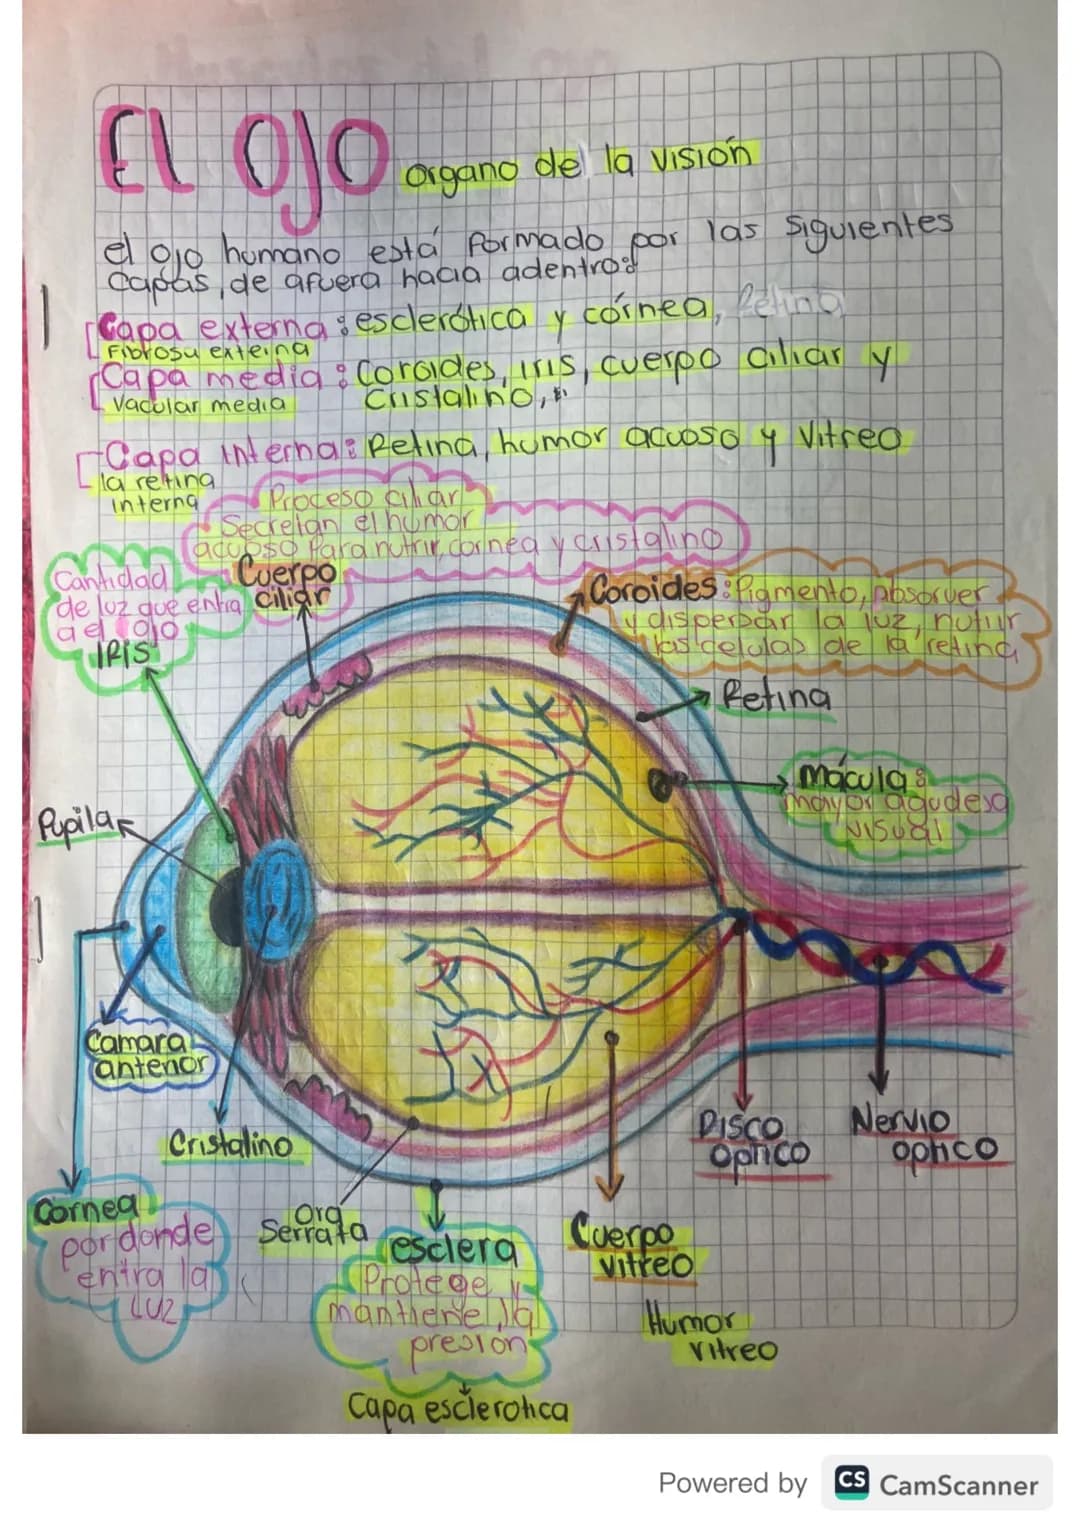 EL OJO organo de la visión
el ojo humano está formado por las siguientes
Capas, de afuera hacia adentro:
Capa externa: esclerótica y córnea, Retina
Fibrosa externa
Capa media: Coroides, iris, cuerpo ciliar y
Cristalino,
Vacular media
Capa interna: Retina, humor acuoso y Vitreo
la retina
interna
Proceso ciliar
Secretan el humor
acuoso para nutrir cornea y cristalino
Cuerpo
ciliar
Cantidad
de luz que entra
a el ojo
IRIS
Coroides: Pigmento, absorver
y dispersar la luz, nutrir
las celulas de la retina
Retina
Mácula:
mayor agudesa
visual
Pupila
Camara
anterior
Cristalino
Cornea
por donde
entra la
LUZ
Ora
Serrata
esclera
Protege y
mantiene la
presion
Capa esclerotica
Cuerpo
vitreo
Humor
vitreo
Disco
Optico
Nervio
optico
Powered by CS CamScanner